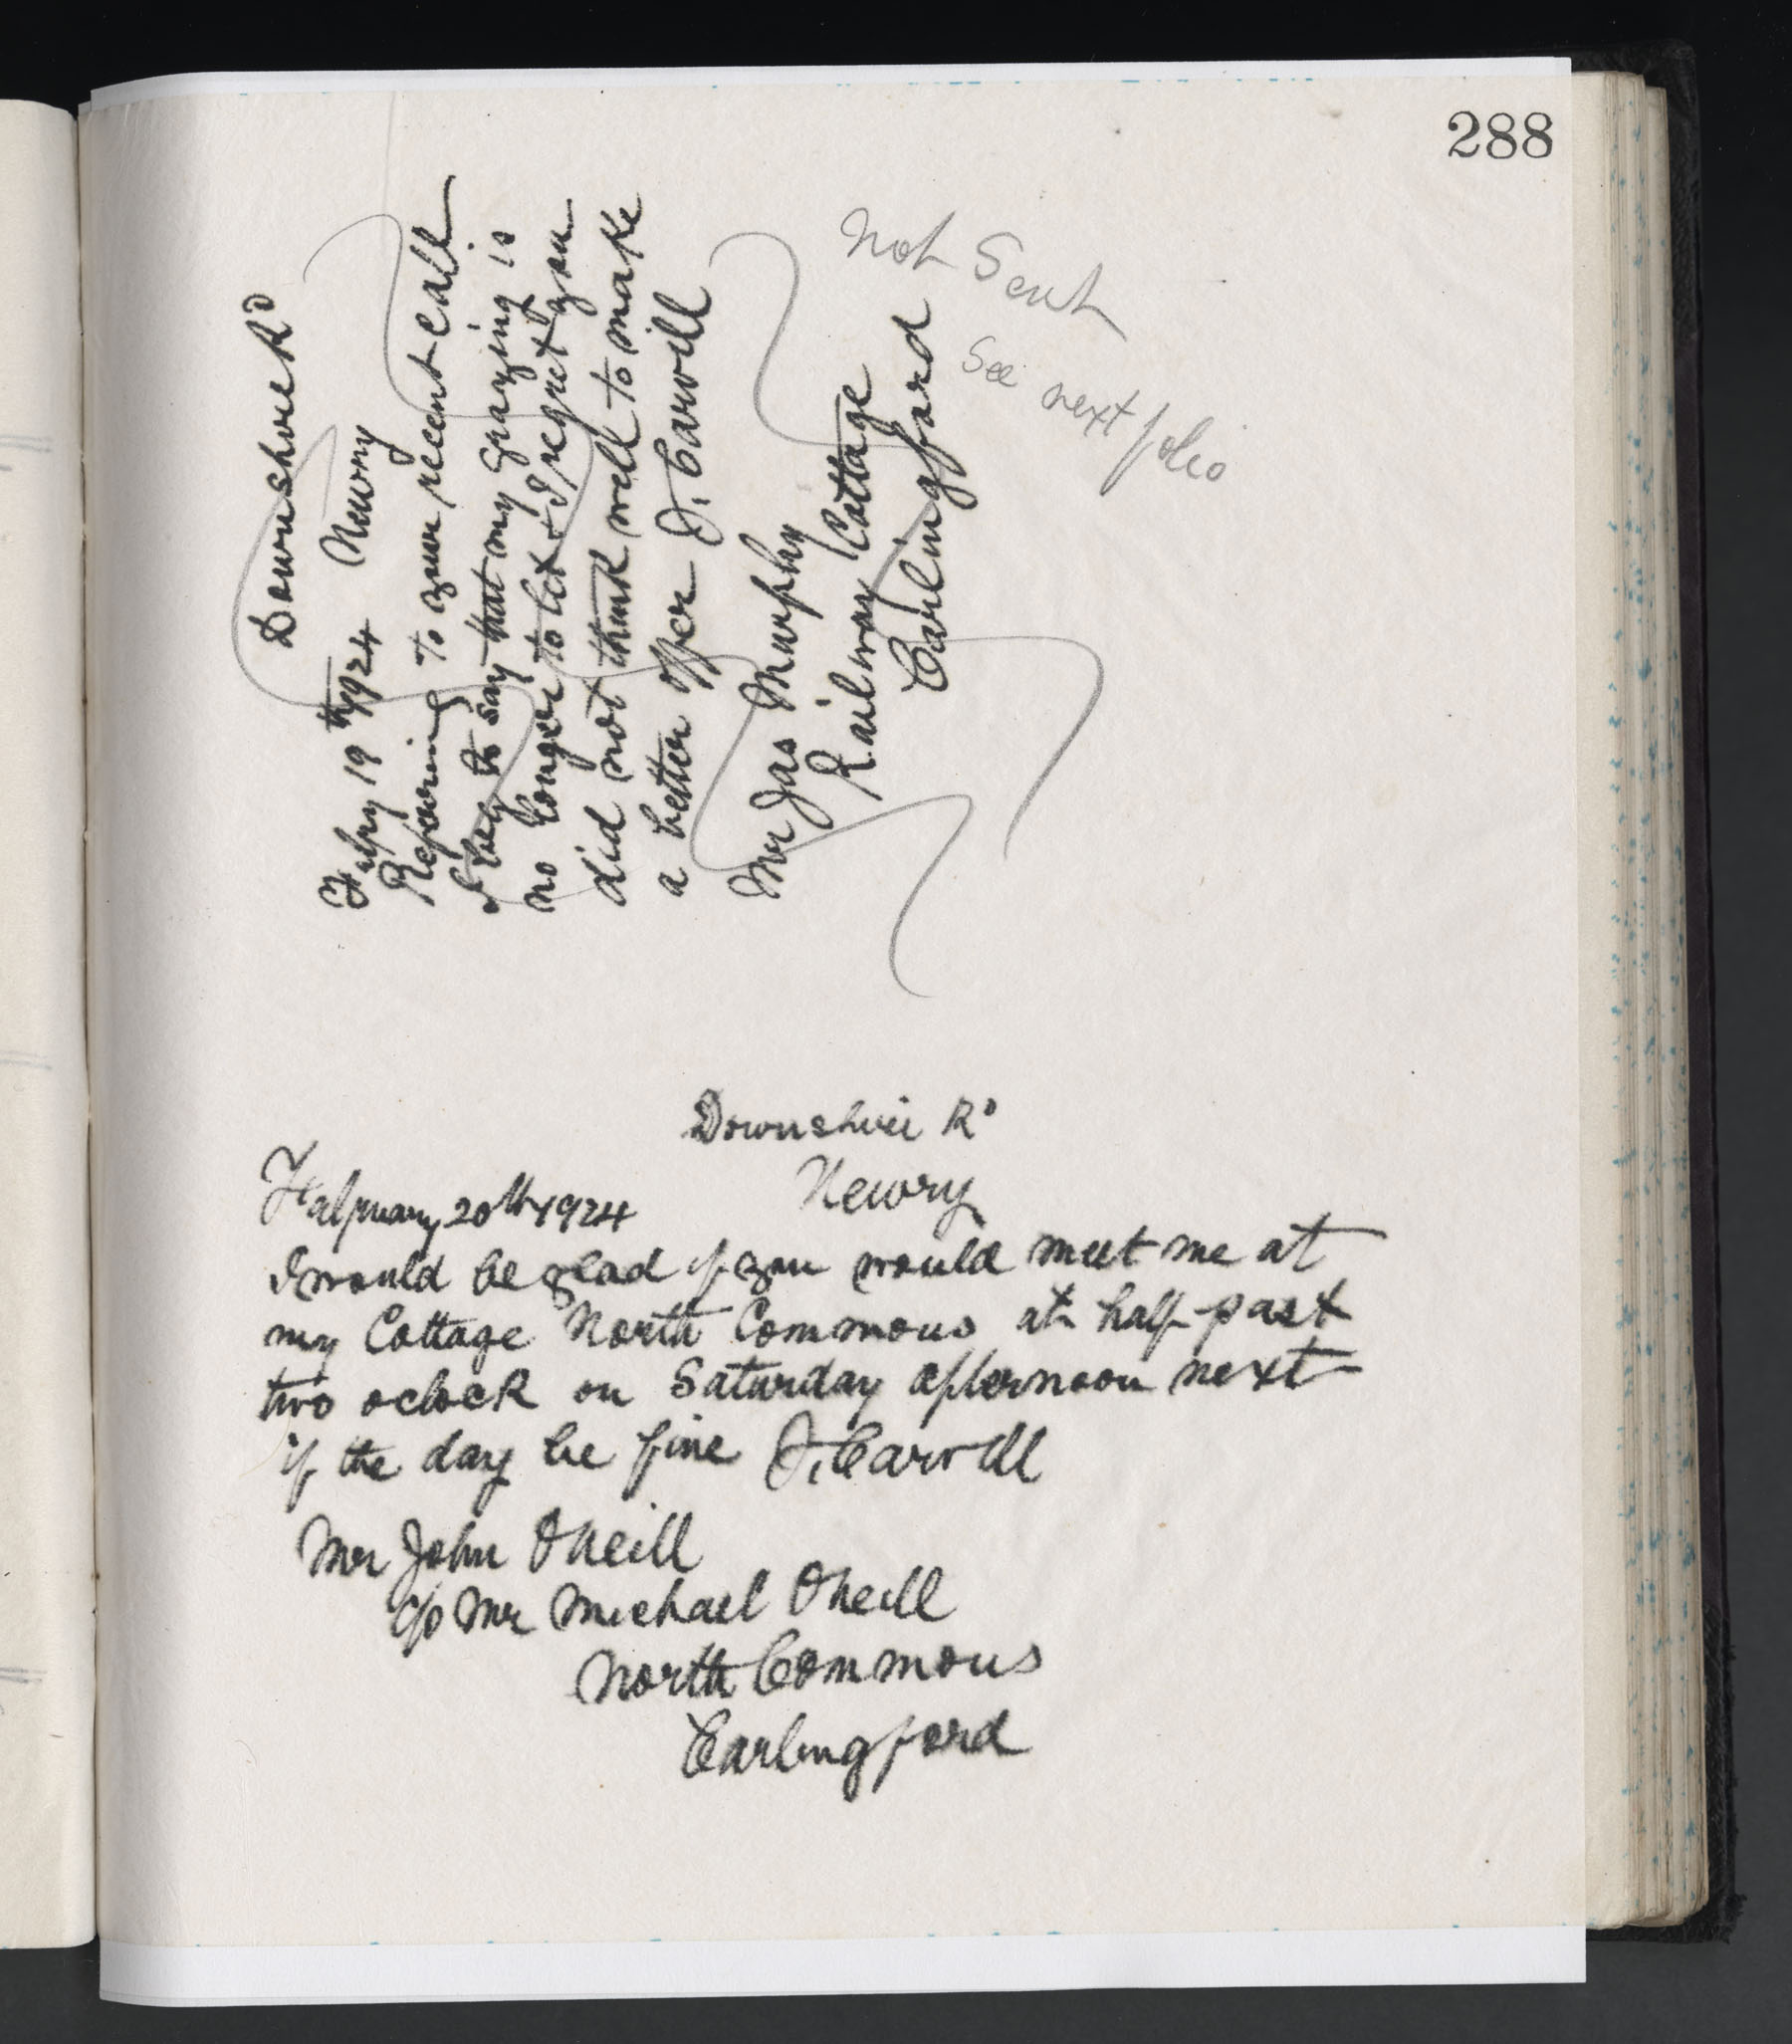 288
Downshire Rd
Newry
Febry 19th 1924
Referring to your recent call
I beg to say that my grazing is
no longer to let & I regret you
did not think well to make
a better offer J. Carvill
Mr Jas Murphy
Railway Cottage
Carlingford
Not Sent
See next folio
Downshire Rd
Newry
February 20th 1924
I would be glad if you would meet me at
my Cottage North Commons at half past
two oclock on Saturday afternoon next
if the day be fine J. Carvill
Mr John ONeill
c/o Mr Michael ONeill
North Commons
Carlingford